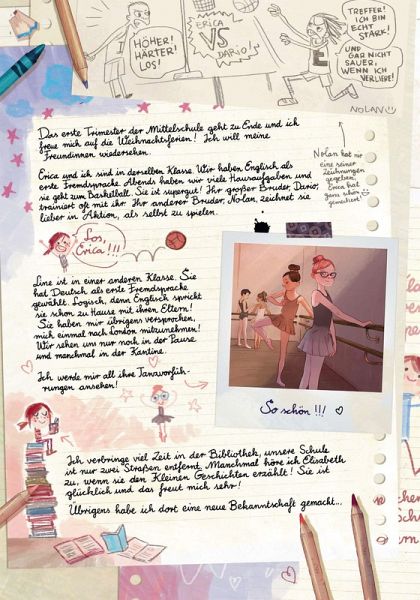 HÖHER!
HÄRTER!
LOS!
ERICA
VS
DARIO!
TREFFER!
ICH BIN
ECHT
STARK!
UND
GAR NICHT
SAUER,
WENN ICH
VERLIERE!
NOLAN
Das erste Trimester der Mittelschule geht zu Ende und ich
freue mich auf die Weihnachtsferien! Ich will meine
Freundinnen wiedersehen.
Nolan hat mir
eine seiner
Zeichnungen
gegeben.
Erica hat
ganz schön
gemeckert!
Erica und ich sind in derselben Klasse. Wir haben Englisch als
erste Fremdsprache. Abends haben wir viele Hausaufgaben und
sie geht zum Basketball. Sie ist supergut! Ihr großer Bruder, Dario,
trainiert oft mit ihr. Ihr anderer Bruder, Nolan, zeichnet sie
lieber in Aktion, als selbst zu spielen.
Los,
Erica!!!
Line ist in einer anderen Klasse. Sie
hat Deutsch als erste Fremdsprache
gewählt. Logisch, denn Englisch spricht
sie schon zu Hause mit ihren Eltern!
Sie haben mir übrigens versprochen,
mich einmal nach London mitzunehmen!
Wir sehen uns nur noch in der Pause
und manchmal in der Kantine.
Ich werde mir all ihre Tanzvorfüh-
rungen ansehen!
So schön!!!
Ich verbringe viel Zeit in der Bibliothek, unsere Schule
ist nur zwei Straßen entfernt. Manchmal höre ich Elisabeth
zu, wenn sie den Kleinen Geschichten erzählt! Sie ist
glücklich und das freut mich sehr!
Übrigens habe ich dort eine neue Bekanntschaft gemacht...